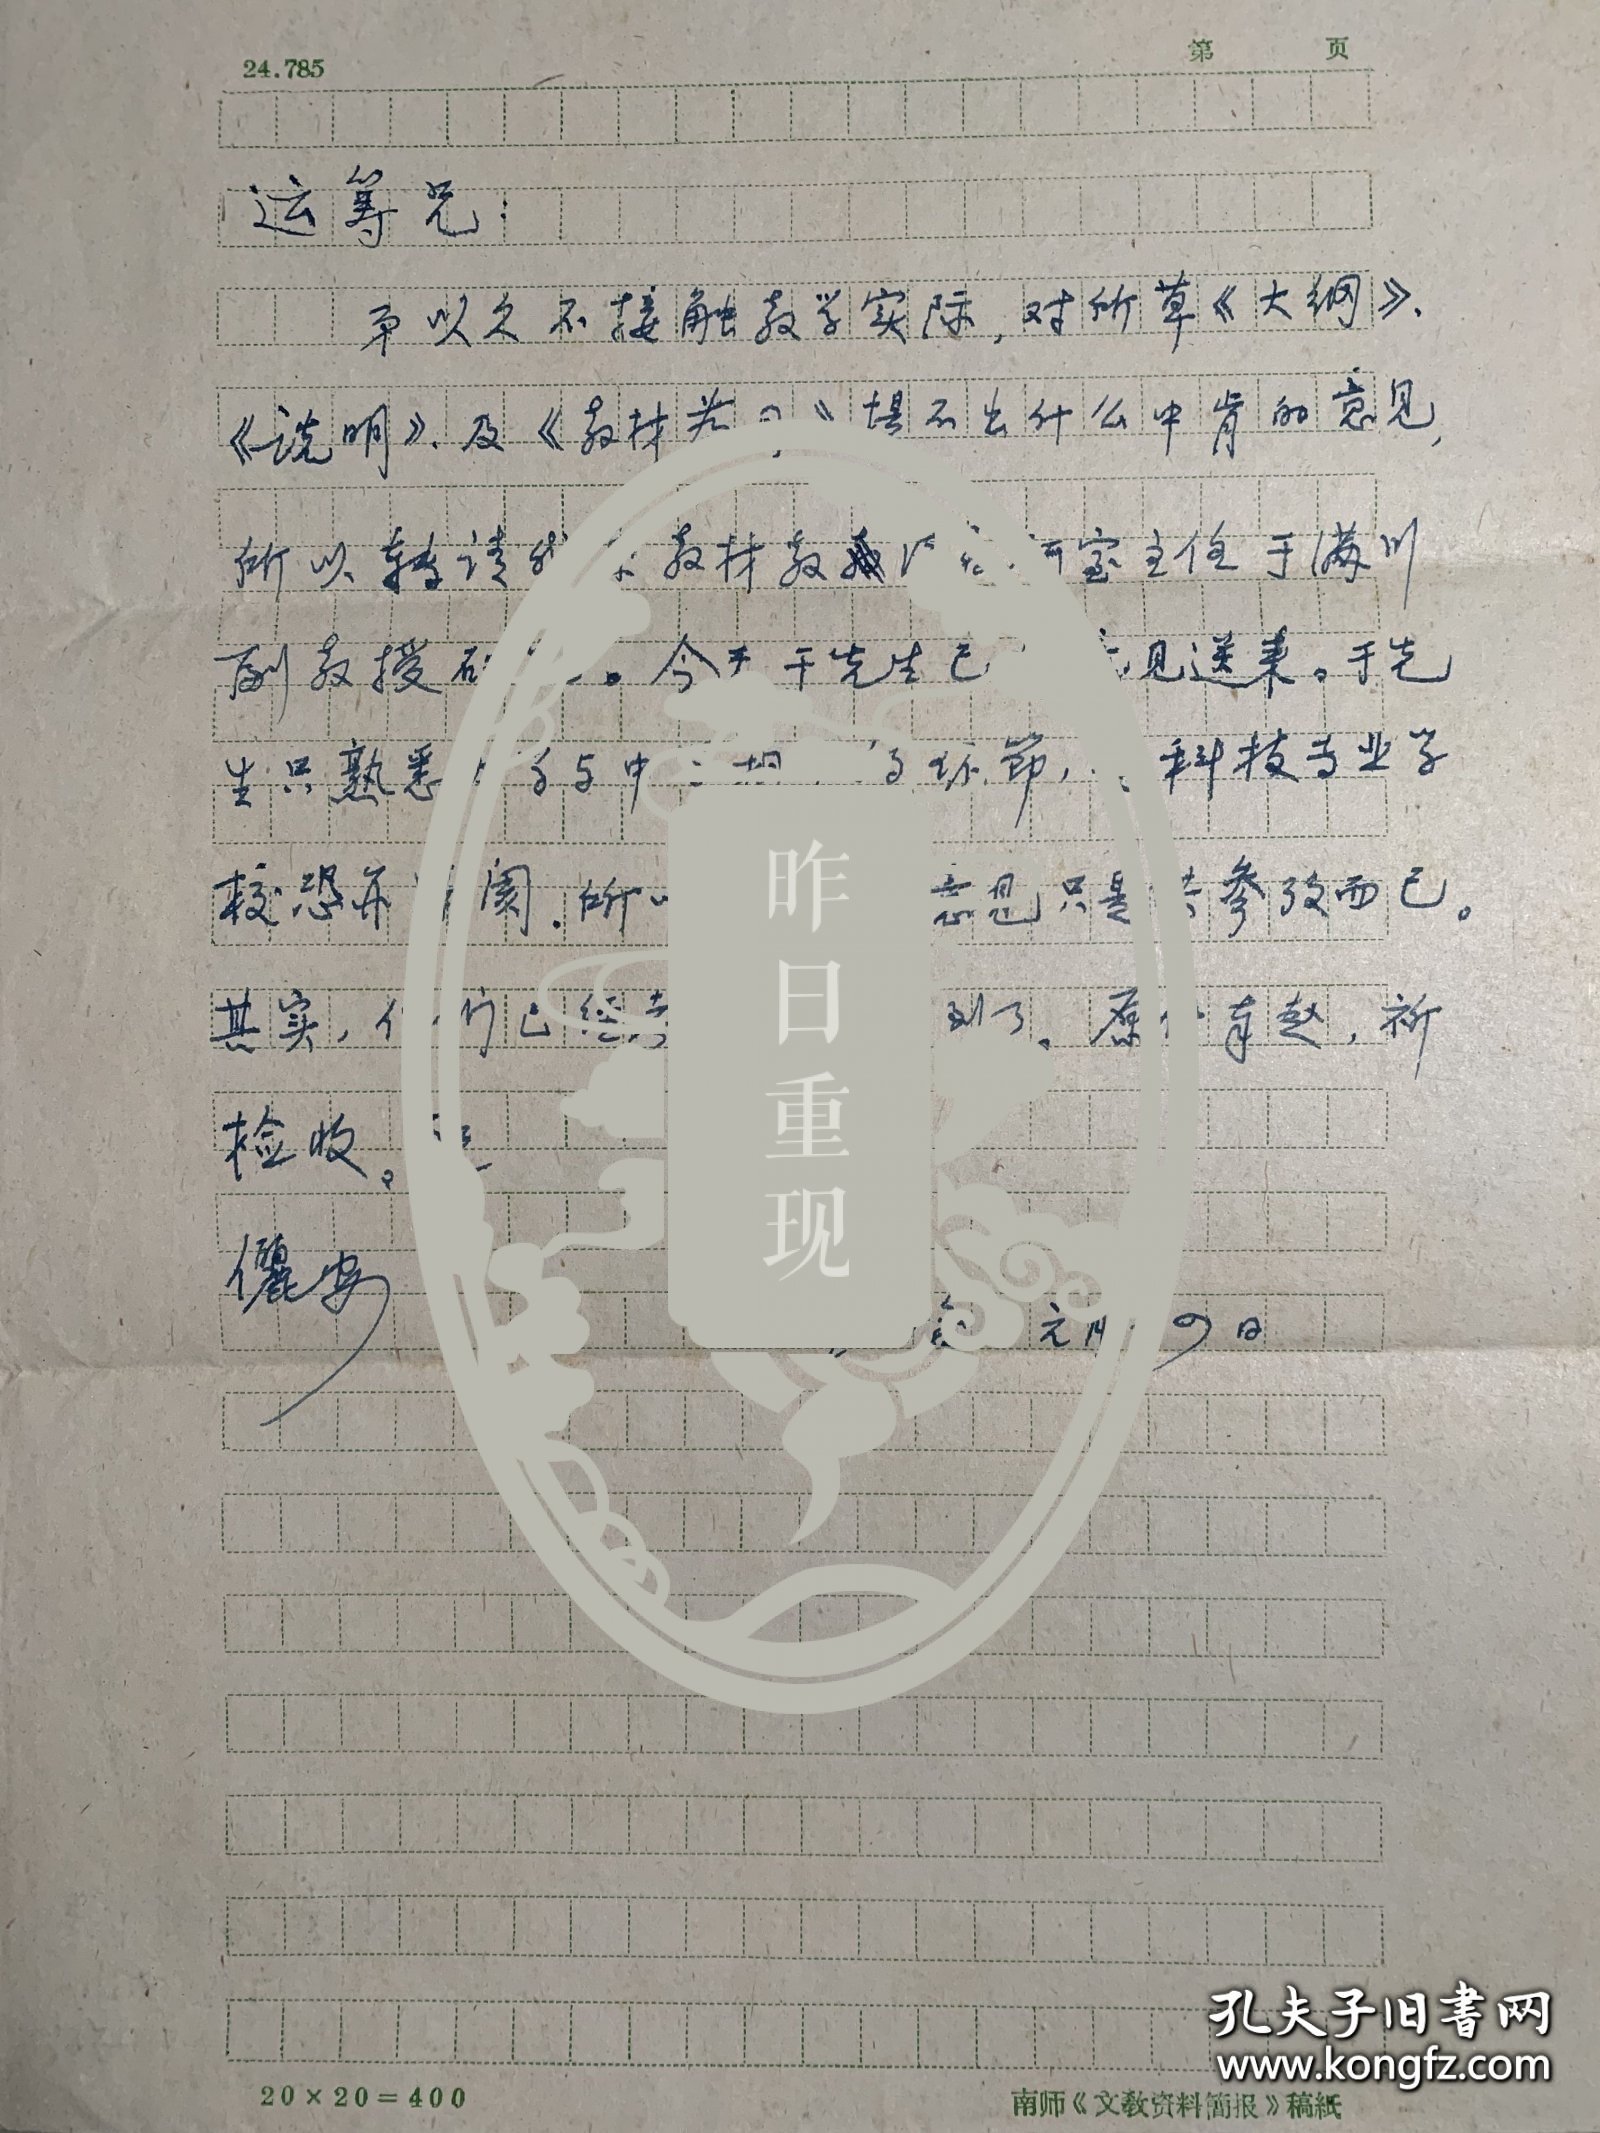 24.785 第 页
运筹兄：
弟以久不接触教学实际，对所草《大纲》、
《说明》、及《教材 》提不出什么中肯的意见，
所以转请 教材教 室主任于满川
副教授 。今天于先生已 意见送来。于先
生只熟悉 与中 环节， 科技专业学
校恐亦 阂．所以 意见只是供参考而已。
其实， 们已经 到了。原件奉赵，祈
检收。
俪安
年 元月 9日
20×20=400 南师《文教资料简报》稿紙
昨日重现
孔夫子旧书网
www.kongfz.com